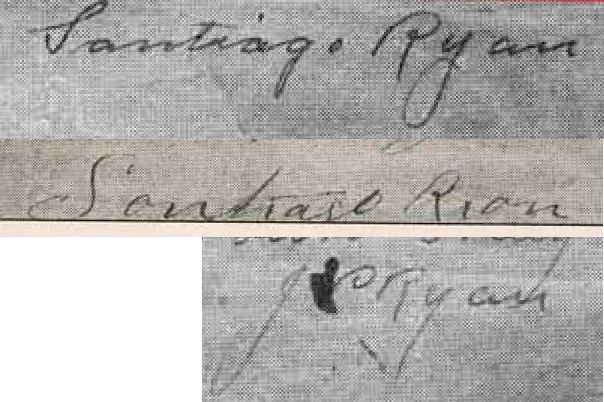 Santiago Ryan
Santiago Rion
J P Ryan